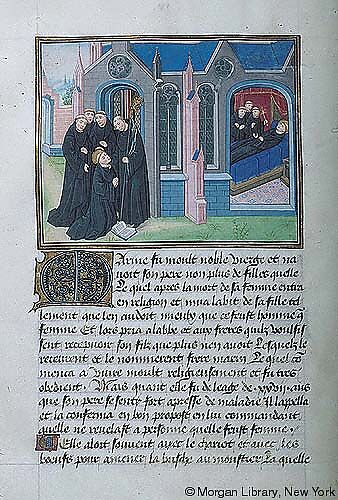 Arine fu moult noble vierge et na
uoit son pere non plus de filles quelle
Le quel apres la mort de sa femme entra
en religion et mua labit de sa fille tel
lement que len cuidoit mieulx que ce fust homme que
femme Et lors pria a labbe et aux freres quilz voulsis
sent receuoir son filz que plus nen auoit Lesquelz le
receurent et le nommerent frere marin Le quel com
menca a viure moult religieusement et fu tres
obedient. Mais quant elle fu de leage de xxvij ans
que son pere se senty fort apresse de maladie Il lappella
et la conferma en bon propost en luy commandant
quelle ne reuelast a personne quelle fust femme.
Elle aloit souuent auec le chariot et auec les
boeufs pour amener la busche au moustier La quelle
© Morgan Library, New York